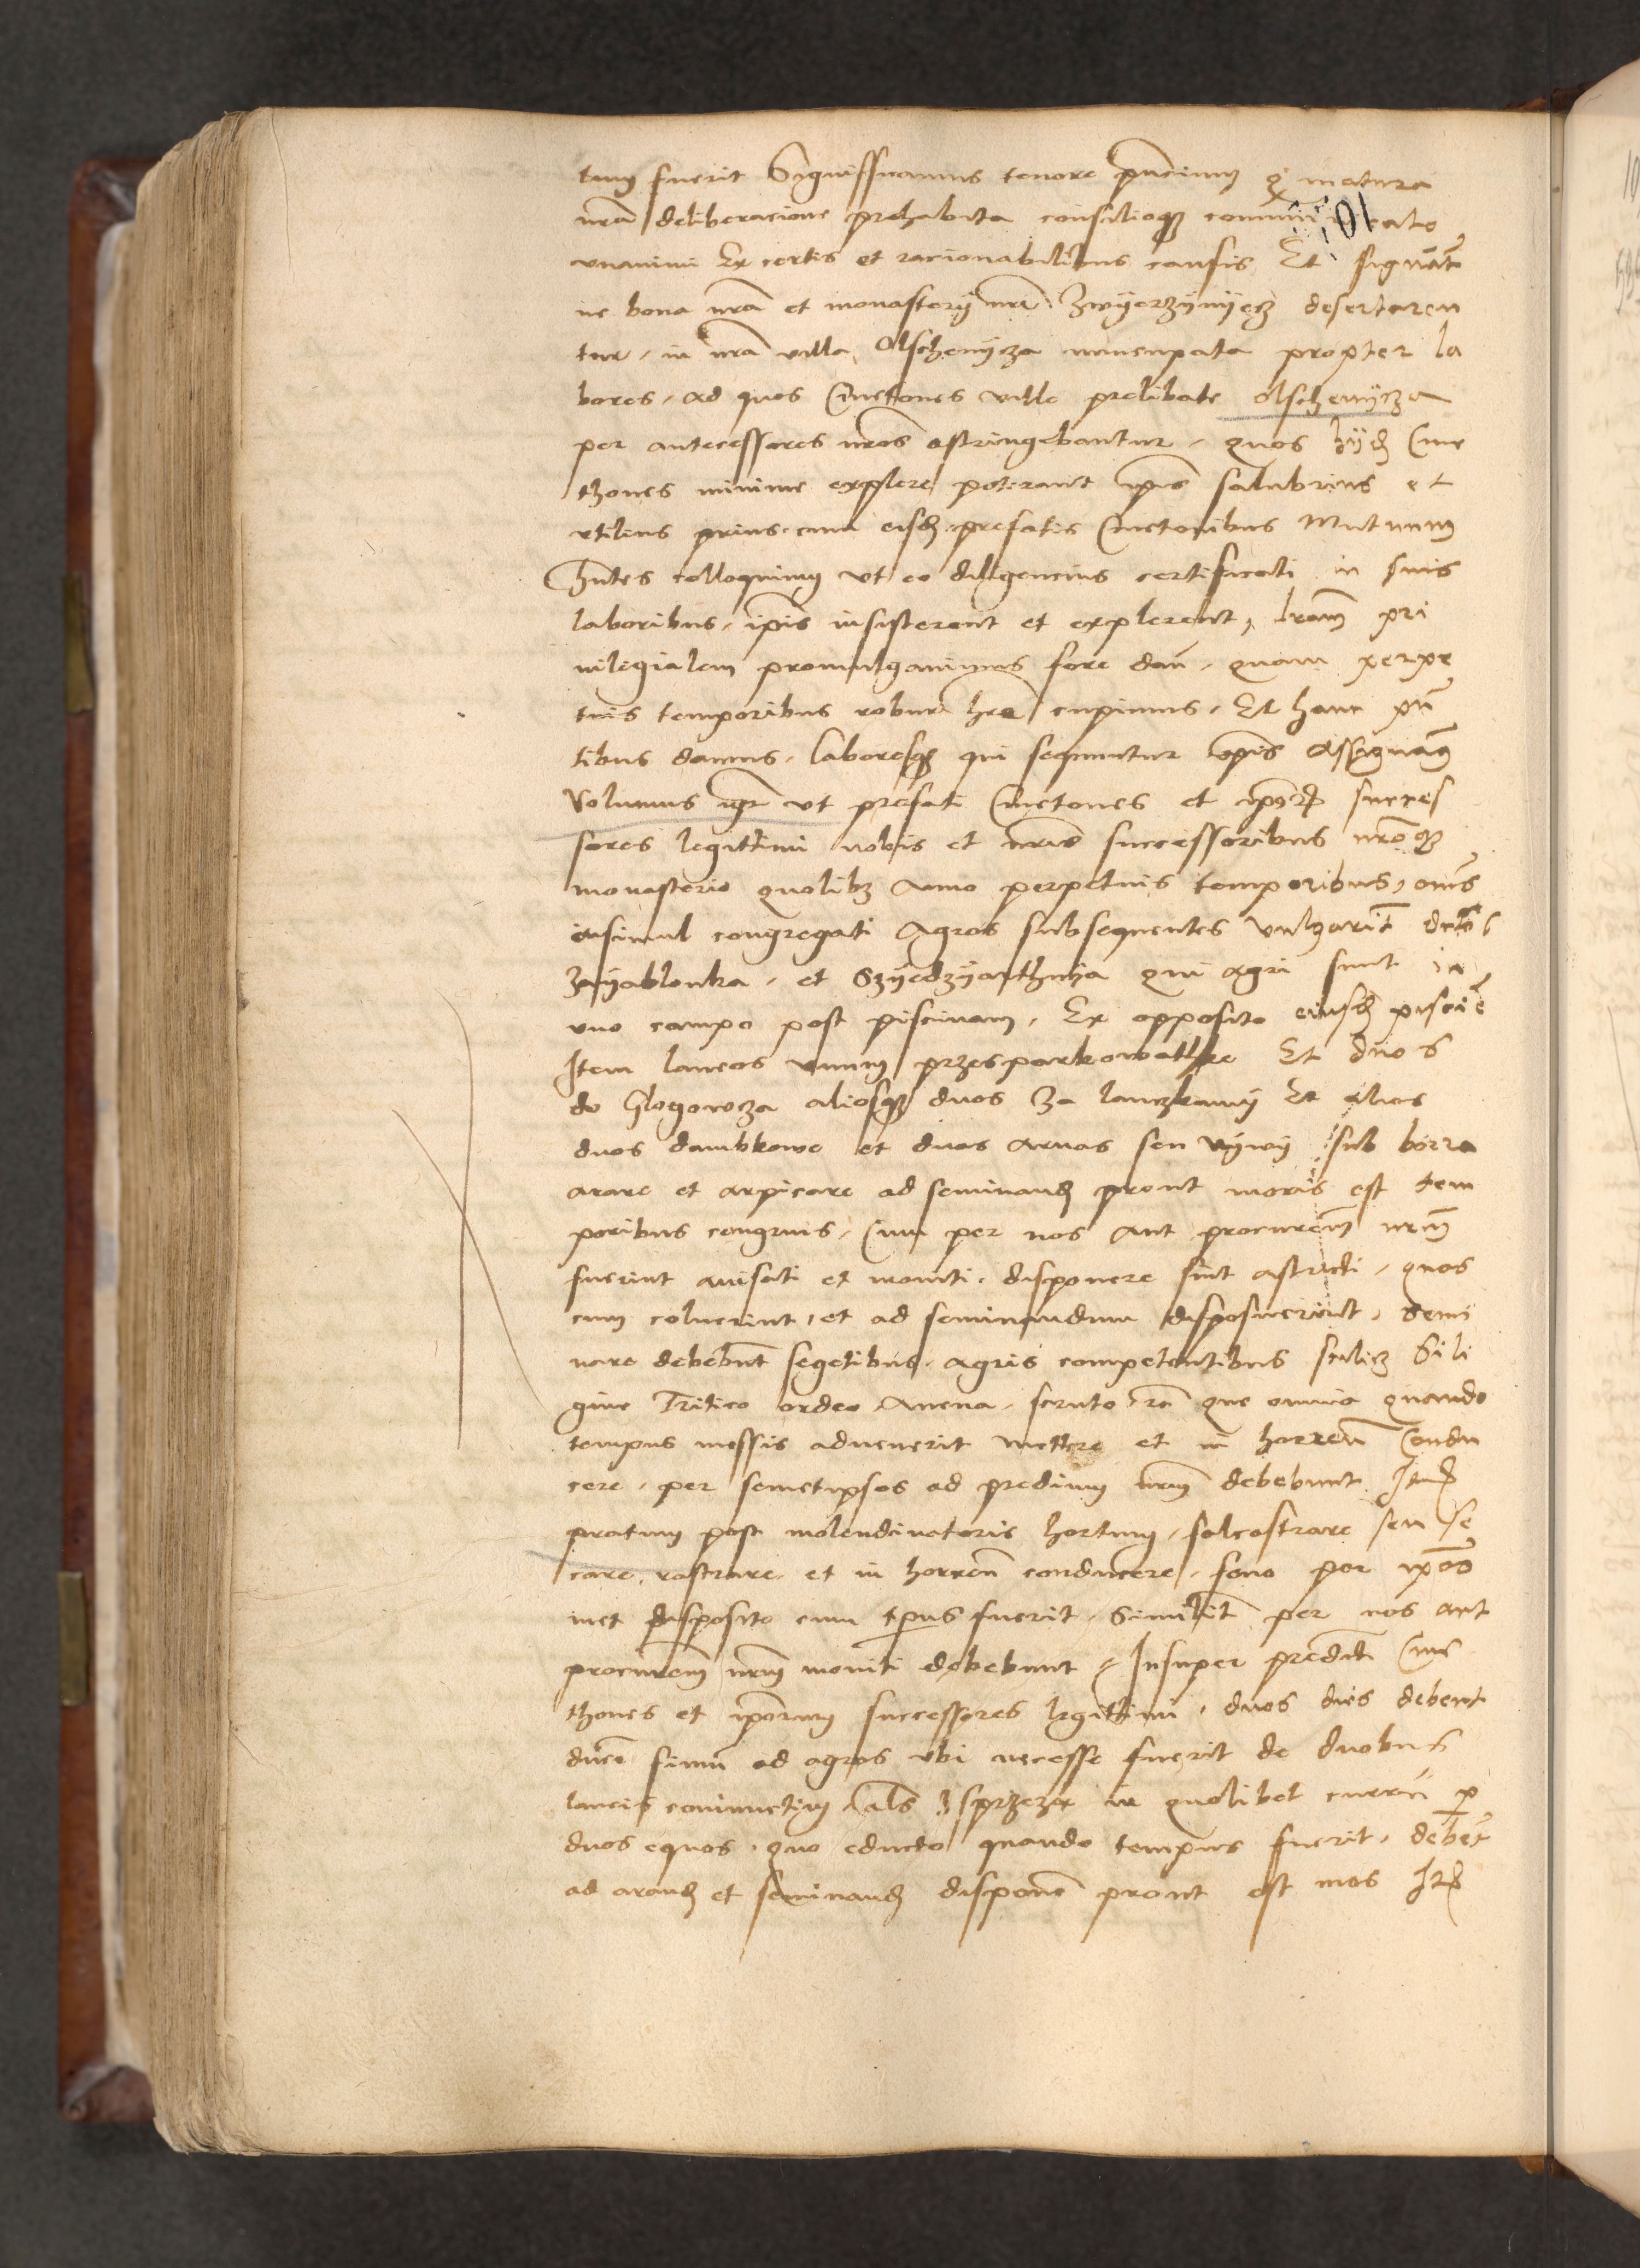 tum fuerit Significamus tenore p̄ncium q̄ matura
nr̄a deliberacione prehabita consilioq3 communicato
vnanimi Ex certis et racionabilibus causis Et signāt̄
ne bona nr̄a et monasterÿ nr̄i Zwÿerzÿnÿecz desertaren
tur, in nr̄a villa Olschenÿcza nuncupata propter la
bores, ad quos Cmetones ville prelibate Olschenÿcza
per antecessores nr̄os astringebantur, quos hÿd Cme
thones minime explere poterant ip̄is salubrius et
vtilius prius cum eisd prefatis Cmetonibus Mutuum
hn̄tes colloquium vt eo diligencius certificati in suis
laboribus, ip̄is insisterent et explerent, lr̄am pri
uilegialem promulgauimus fore dan̄, quam perpe
tuis temporibus robur hr̄e cupimus, Et hanc p̄n
tibus damus, laboresq3 qui sequuntur ip̄is Assignam̄
Volumus igr̄ vt prefati Cmetones et ip̄or succes
sores legittimi nobis et nr̄is successoribus nr̄oq3
monasterio quolib3 Anno perpetuis temporibus, om̄s
insimul congregati Agros subsequentes Vulgarit̄ dictos
Zayablonka, et Szÿedzÿanthnÿa qui agri sunt in
vno campo post piscinam, Ex opposito eiusd piscīe
Item laneos vnum przesparkowathke Et duos
do Glogowcza aliosq3 duos Za lanczkamÿ Et alios
duos dambkowe et duos aruas seu nÿwÿ sub borra
arare et arpicare ad seminand prout moris est tem
poribus congruis, Cum per nos Aut procur̄em nr̄um
fuerint auisati et moniti, disponere sint astricti, quos
cum coluerint, et ad seminandum disposuerint, semi
nare debebunt segetibus, agris competentibus scilic3 Sili
gine Tritico ordeo Auena, que omnia quando
tempus messis aduenerit mettere et in horreū Condu
cere, per semetipsos ad predium nr̄um debebunt Item
pratum post molendinatoris hortum, falcastrare seu se
care, rastrare et in horreū conducere, feno per ip̄os
met disposito cum tp̄us fuerit, Similit̄ per nos aut
procur̄em nr̄um moniti debebunt, Insuper predict̄i Cme
thones et ip̄orum successores legittimi, duos dies debent
duc̄e fimū ad agros vbi necesse fuerit de duobus
laneis coniunctim als sprzeza in quolibet curru p̄
duos equos, quo educto quando tempus fuerit, debēt
ad arand et seminand dispon̄e prout est mos Itē